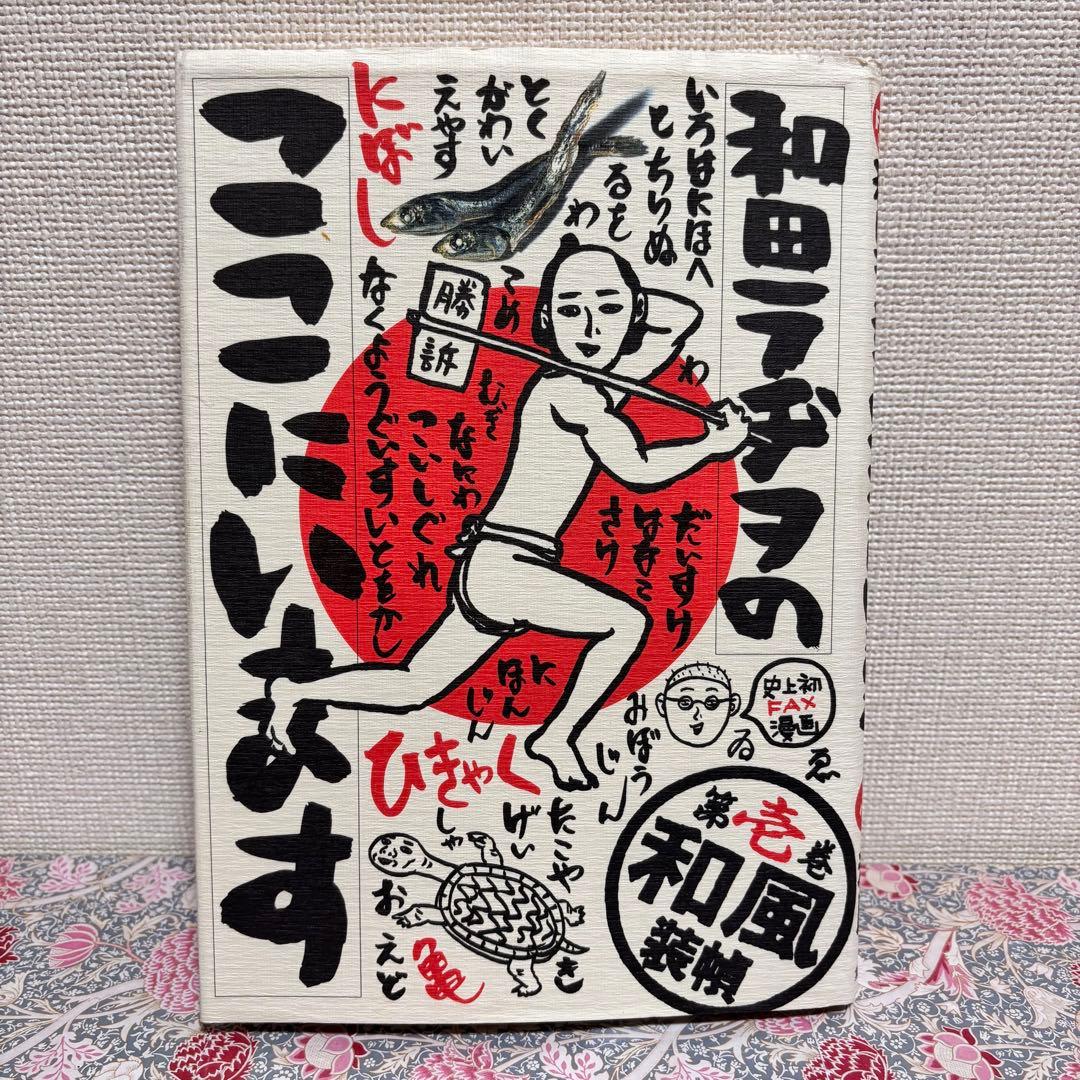 和田ラヂヲの
ここにいます
いろはにほへ
とちりぬ
るを
わ
とく
がわい
えやす
にばし
勝訴
こめ
むぎ
わ
なにわの
こいしぐれ
なくようぐいすいとをかし
だいすけ
はなこ
さけ
にほんじん
おぼうじん
史上初
FAX
漫画
ゐ
ゑ
ひきゃく
しゃ
げい
たこや
き
お
えど
亀
第壱巻
和風
装幀